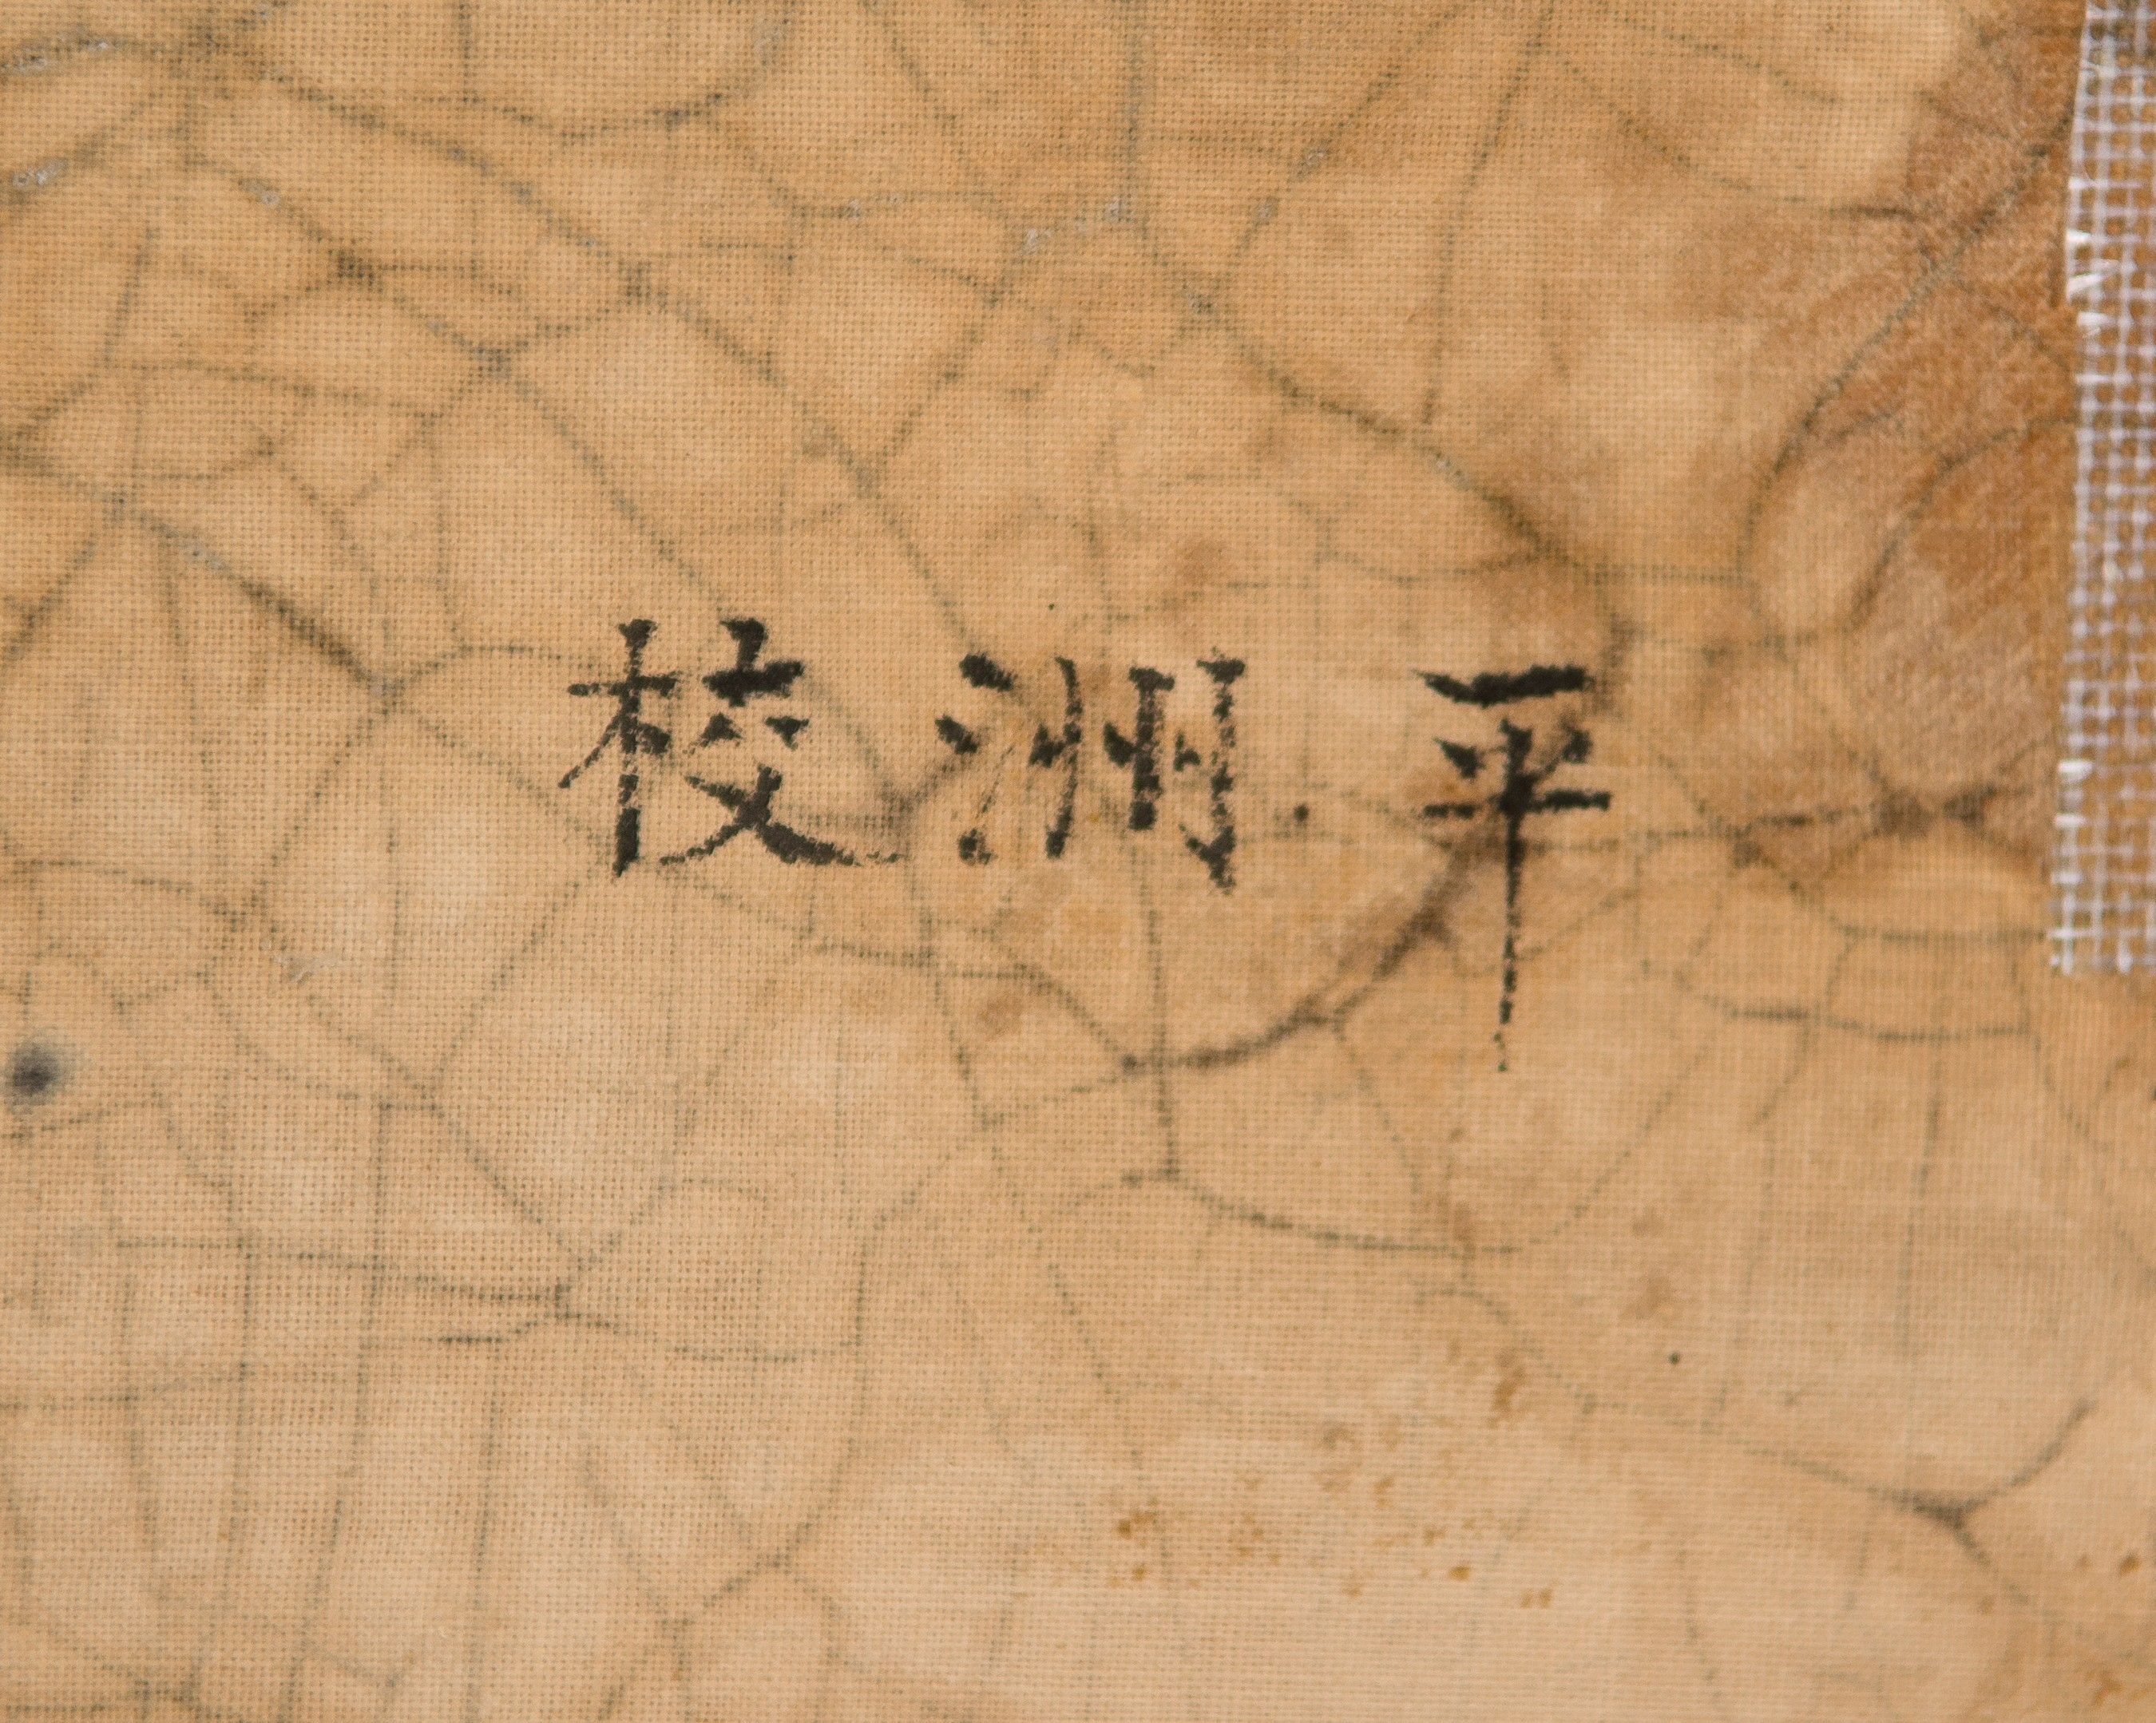 平洲校